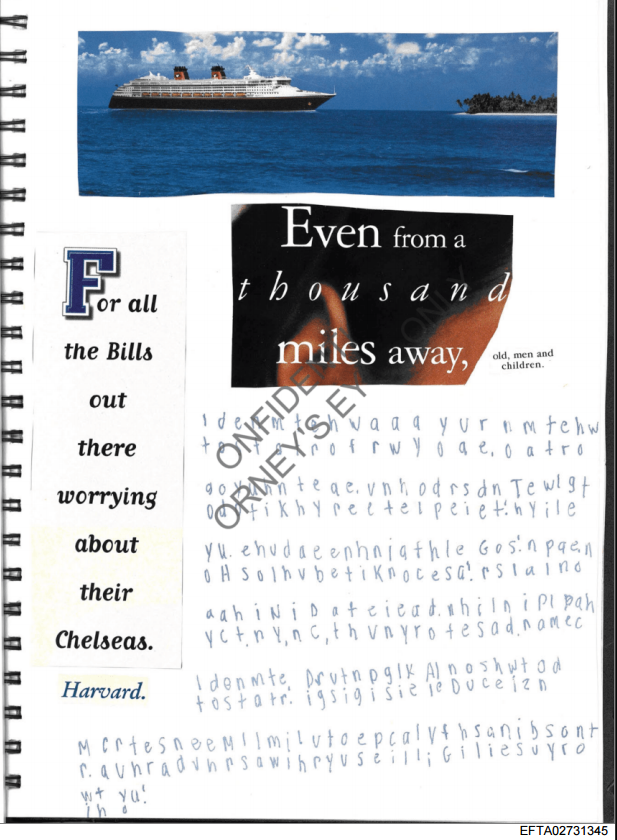 Even from a
thousand
miles away,
old, men and
children.
For all
the Bills
out
there
worrying
about
their
Chelseas.
Harvard.
y u r n m t e h w
o f r w y o a e, o a t r o
v n t, o d r s d n T e w l g t
i k h y r e e t e l p e i e t! h y i l e
y u. e h u d a e e n h n i g t h l e G o s! n p a e n
o H s o l h v b e t i K n o c e s a! r s l a i n o
a a h i N i D a t e i e a d. n h i l n i p l p a h
y c t, n y, n c, t h v n y r o t e s a d, n a m e c
I d o n m t e, D r v t n p g l k A l n o s h w t o d
t o s t a t r. i g s i g i s i e l e D u c e i z n
M c r t e s n e e M l l m i l v t o e p c a l y t h s a n i b s o n t
r. a v h r a d v n r s a w i h r y v s e i l l i G i l i e s v y r o
w t y u!
i h o
ONFIDEN
ORNEY'S EY ONLY
EFTA02731345